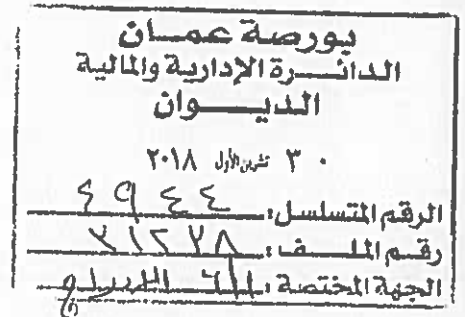 بورصة عمان
الدائرة الإدارية والمالية
الديوان
٣٠ تشرين الأول ٢٠١٨
الرقم المتسلسل: ٤٩٤٤
رقم الملف:
الجهة المختصة: